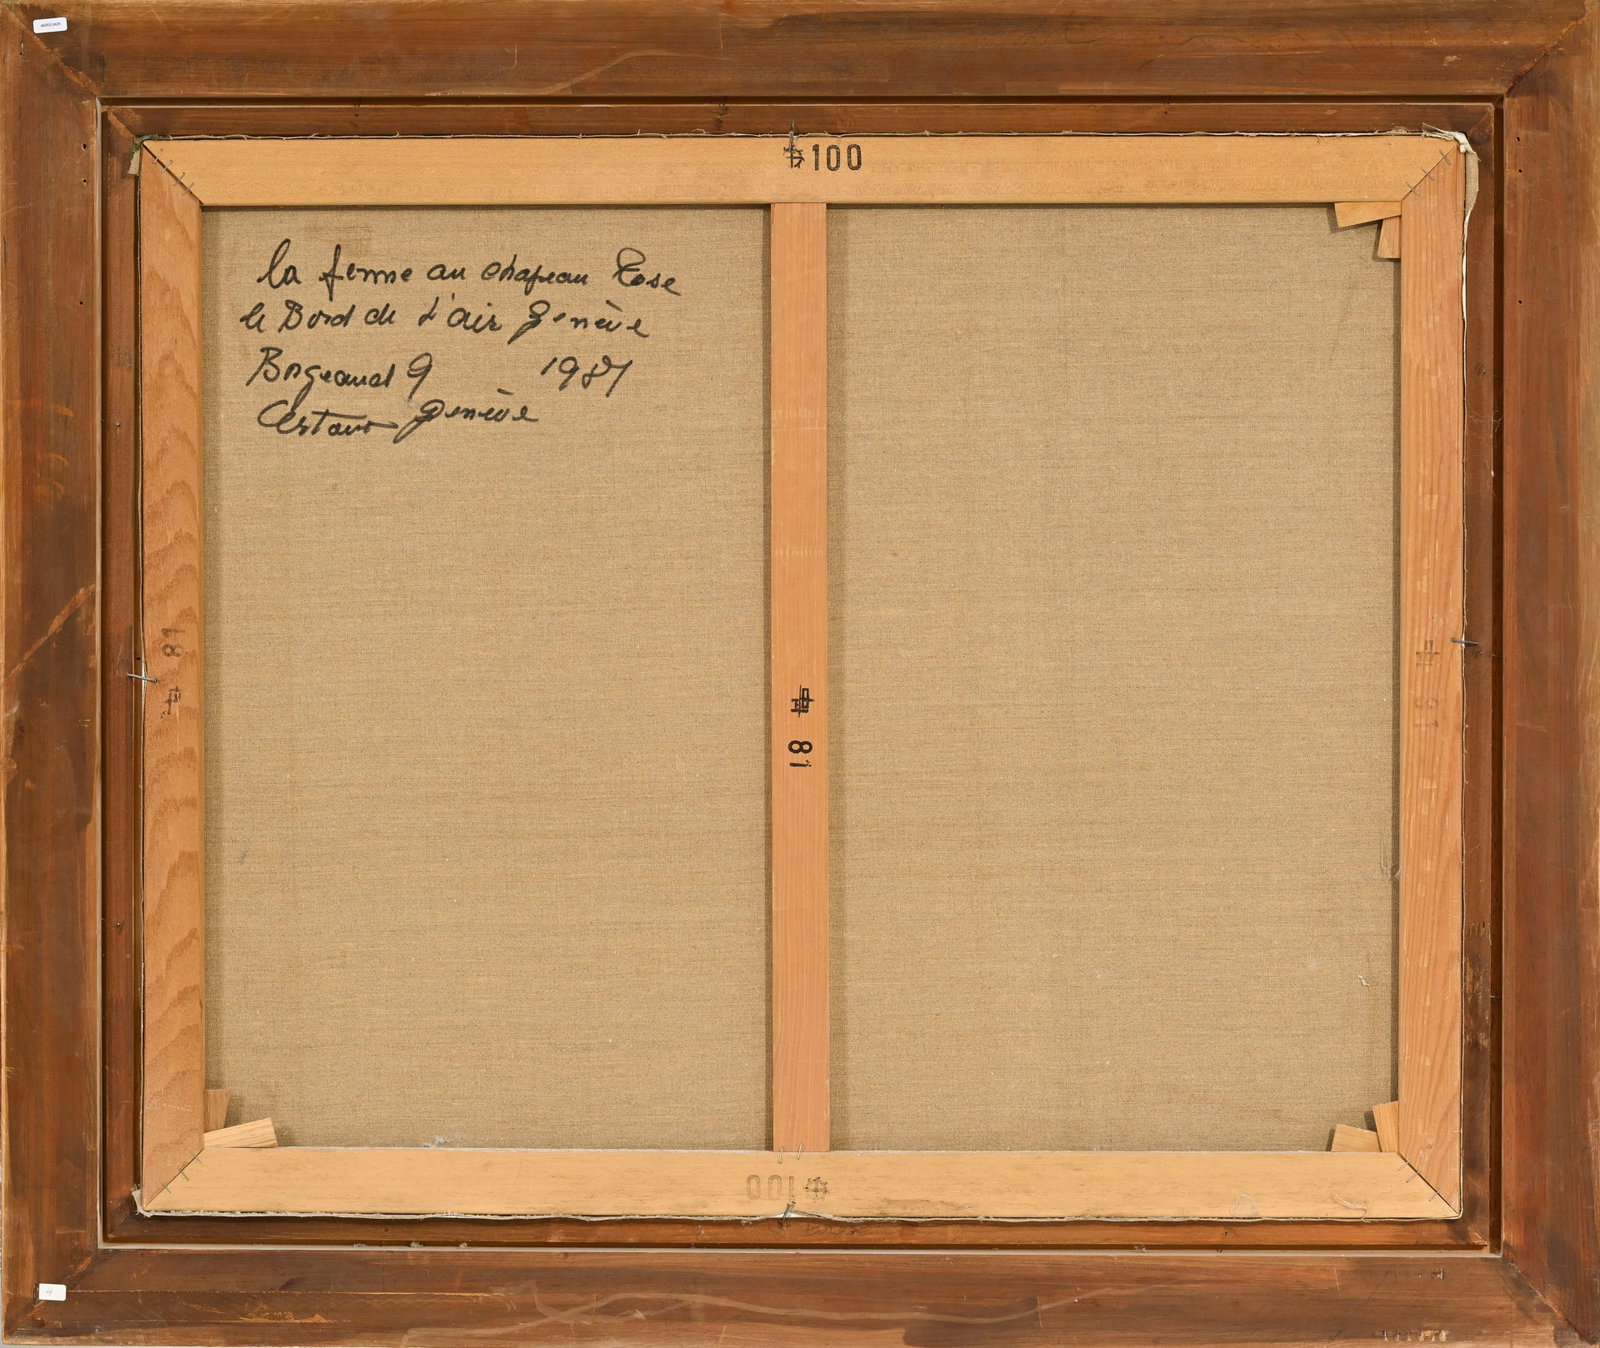 100
la femme au chapeau Rose
le Bord de l'air Genève
Borgeaud 9 1981
Genève
81
81
81
100
4